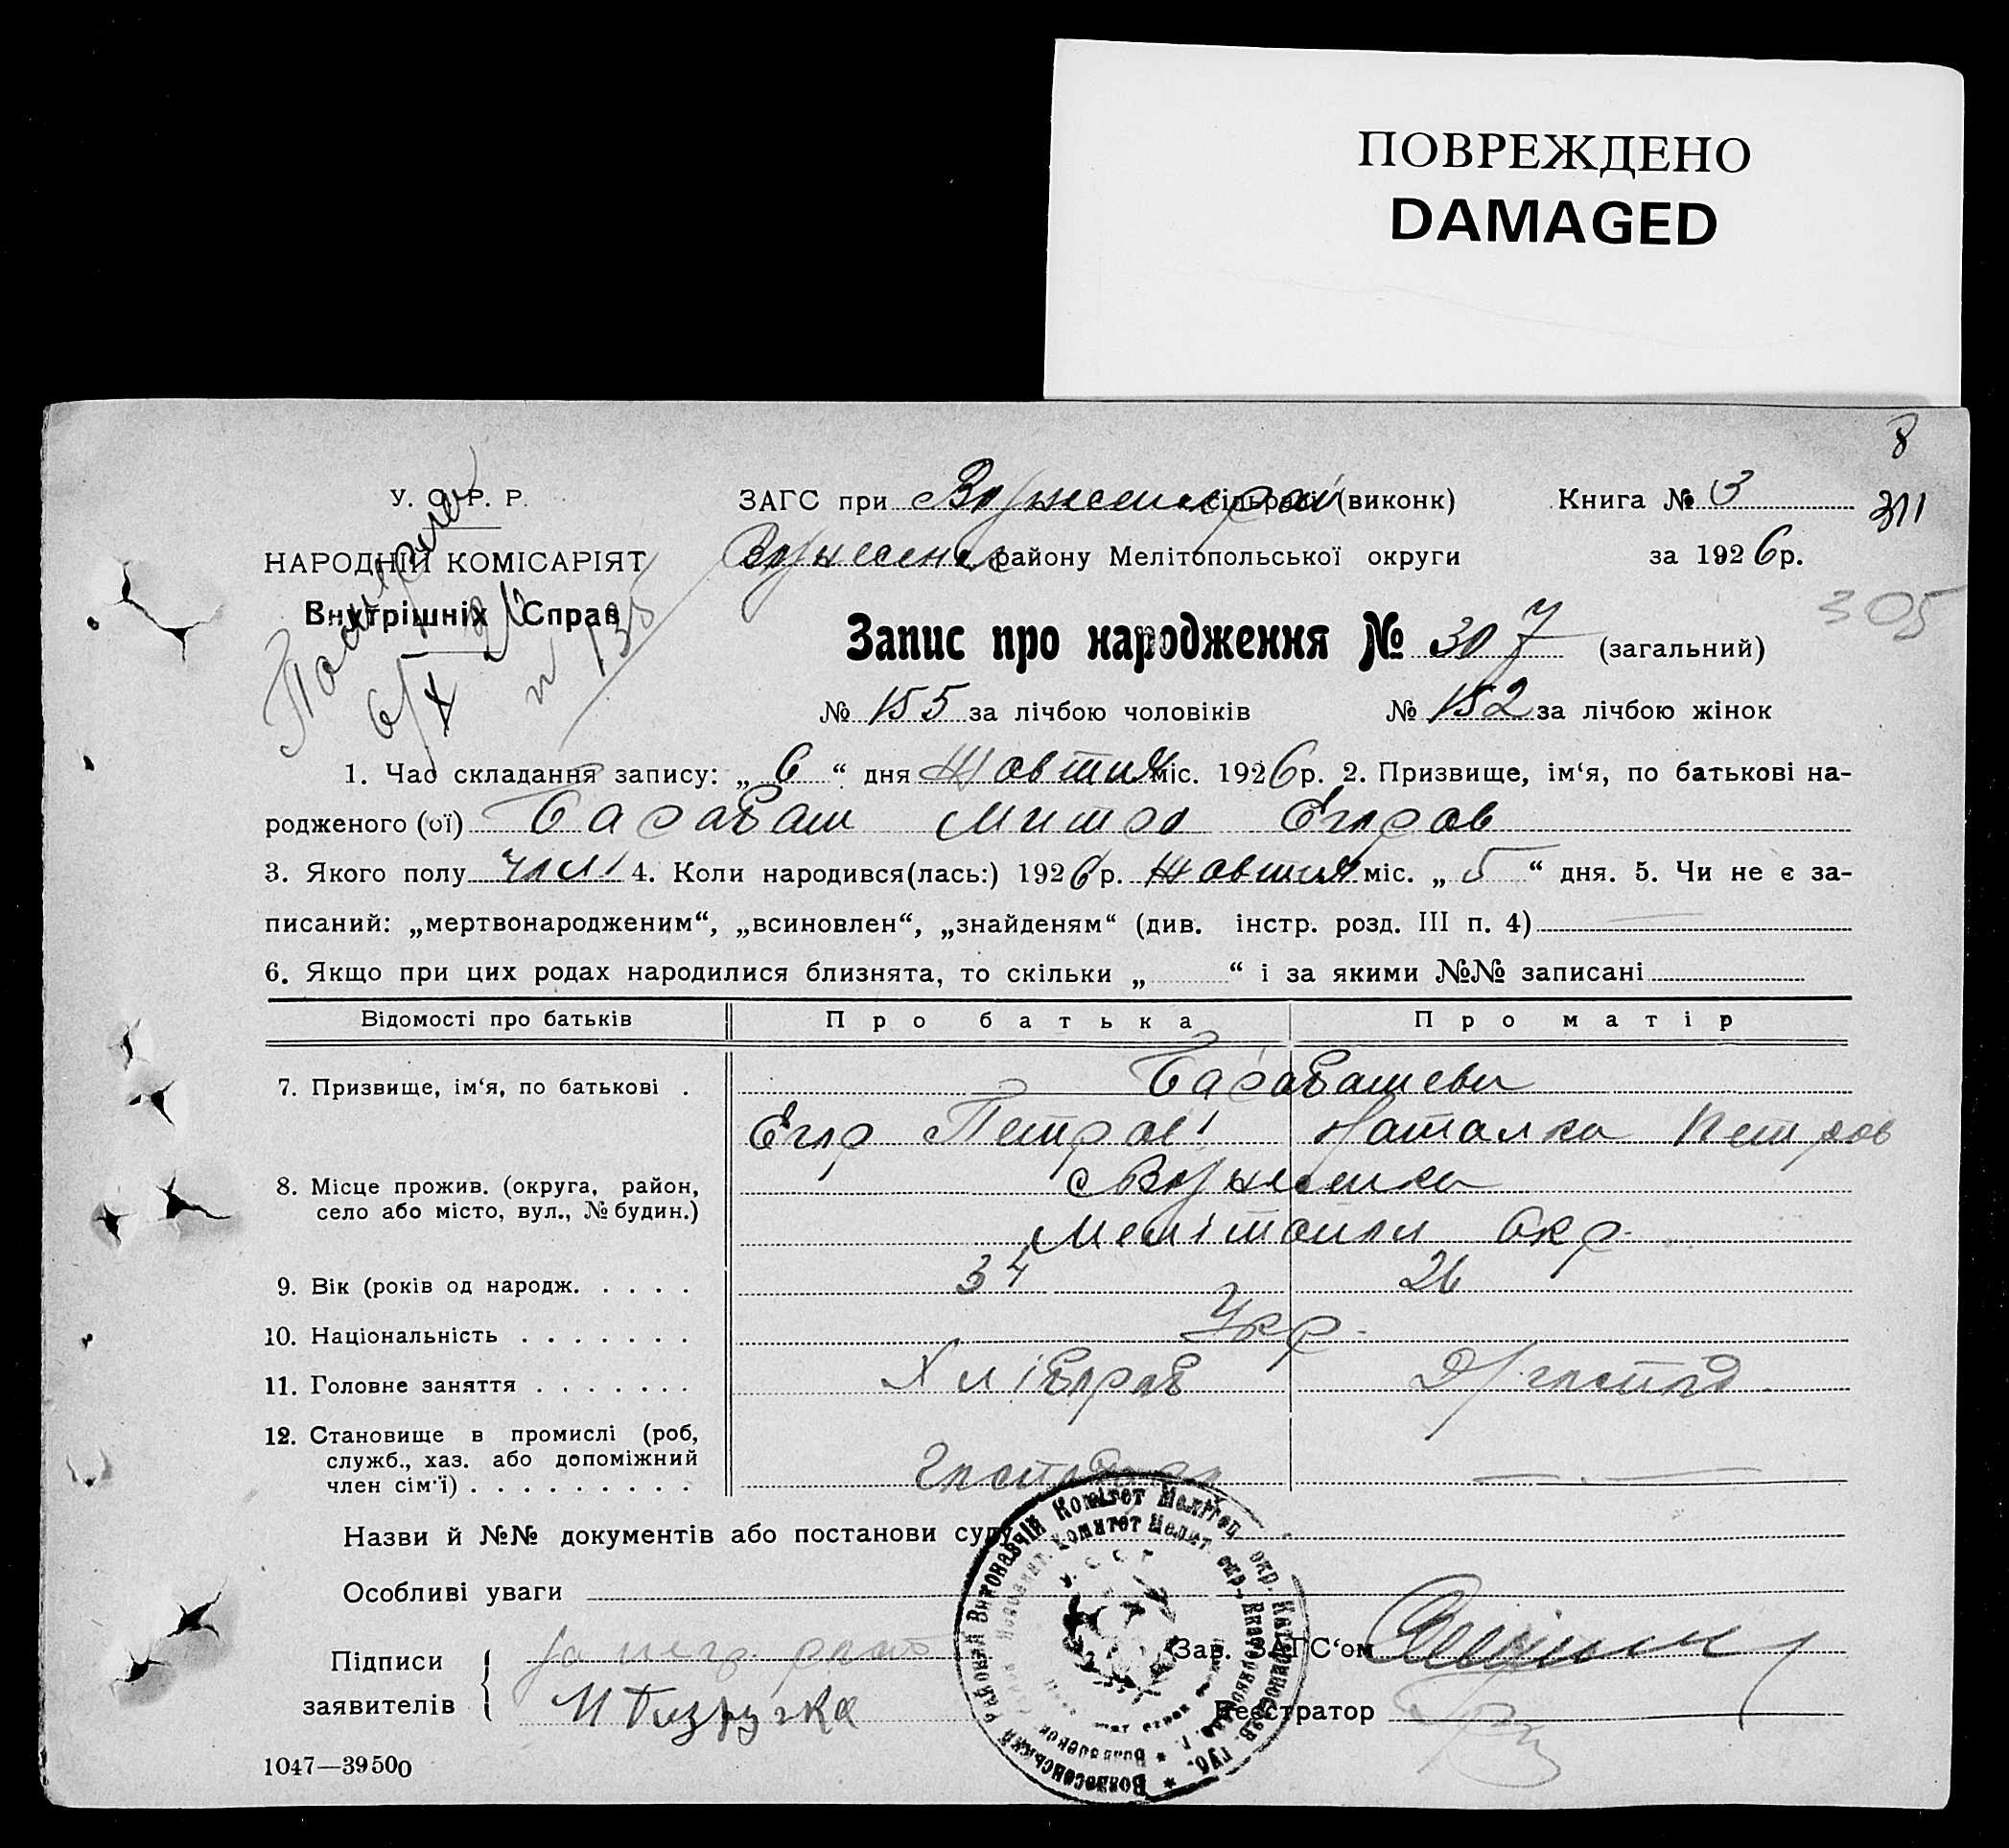 ПОВРЕЖДЕНО
DAMAGED
8
У. С. Р. Р. ЗАГС при (виконк) Книга № 3
311
НАРОДНІЙ КОМІСАРІЯТ району Мелітопольської округи за 1926р.
Внутрішніх Справ
305
Запис про народження № 307 (загальний)
№ 155 за лічбою чоловіків № 152 за лічбою жінок
1. Час складання запису: „ 6 “ дня Жовтня міс. 1926р. 2. Призвище, ім‘я, по батькові на-
родженого (ої) Барабаш Митро Егоров
3. Якого полу чол 4. Коли народився(лась:) 1926р. Жовтня міс. „ 5 “ дня. 5. Чи не є за-
писаний: „мертвонародженим“, „всиновлен“, „знайденям“ (див. інстр. розд. III п. 4)
6. Якщо при цих родах народилися близнята, то скільки „ “ і за якими №№ записані
Відомості про батьків Про батька Про матір
7. Призвище, ім‘я, по батькові . Барабашеви
Егор Петров Наталка Петров
8. Місце прожив. (округа, район, с Вознесенка
село або місто, вул., № будин.)
Мелітополь окр.
9. Вік (років од народж. . . . . 34 26
10. Національність . . . . . . . Укр.
11. Головне заняття . . . . . . . Хлібороб Д/господ.
12. Становище в промислі (роб,
служб., хаз. або допоміжний
член сім‘ї) . . . . . . . . .
Назви й №№ документів або постанови суду
Особливі уваги
Підписи
заявителів
Зав. ЗАГС‘ом
Реєстратор
1047—39500